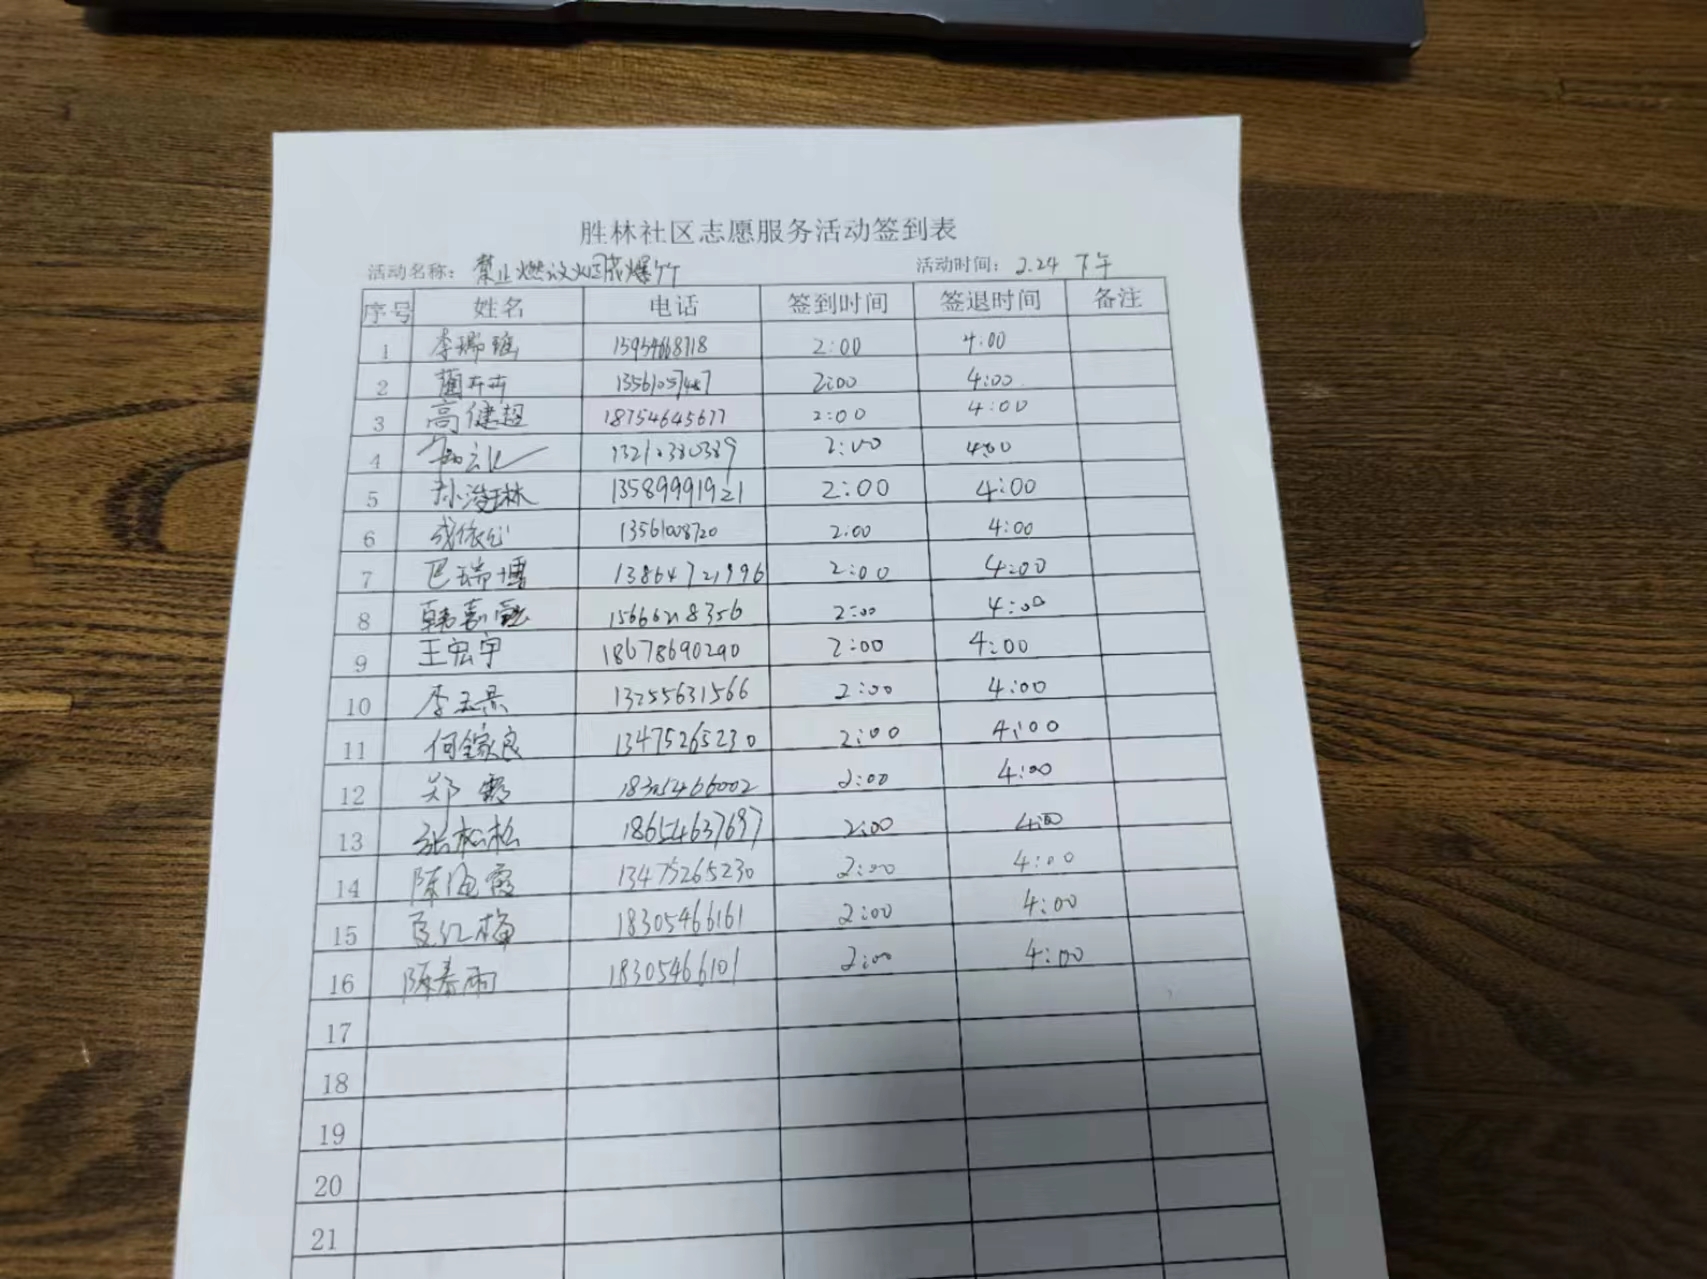 胜林社区志愿服务活动签到表
活动名称： 禁止燃放烟花爆竹 活动时间： 2.24 下午
序号 姓名 电话 签到时间 签退时间 备注
1 李瑞瑶 15954668718 2:00 4:00
2 蔺卉卉 13561057487 2:00 4:00
3 高健超 18754645677 2:00 4:00
4 13210380389 2:00 4:00
5 孙浚琳 13589991921 2:00 4:00
6 2:00 4:00
7 巴瑞博 13864721996 2:00 4:00
8 韩嘉 15666218356 2:00 4:00
9 王宏宇 18678690290 2:00 4:00
10 李玉景 13255631566 2:00 4:00
11 何鎵良 13475265230 2:00 4:00
12 郑霞 18305466002 2:00 4:00
13 张松松 18654637697 2:00 4:00
14 陈海霞 13475265230 2:00 4:00
15 夏红梅 18305466161 2:00 4:00
16 陈春雨 18305466101 2:00 4:00
17
18
19
20
21